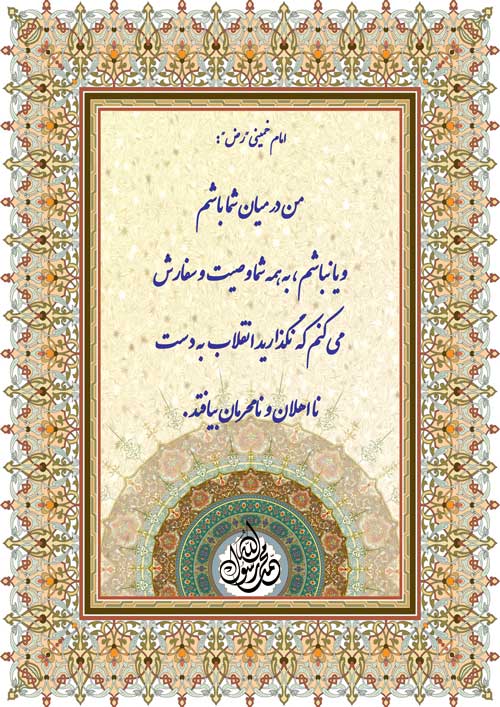 امام خمینی "رض":
من در میان شما باشم
و یا نباشم ، به همه شما وصیت و سفارش
می کنم که نگذارید انقلاب به دست
نا اهلان و نامحرمان بیافتد .
محمد رسول الله